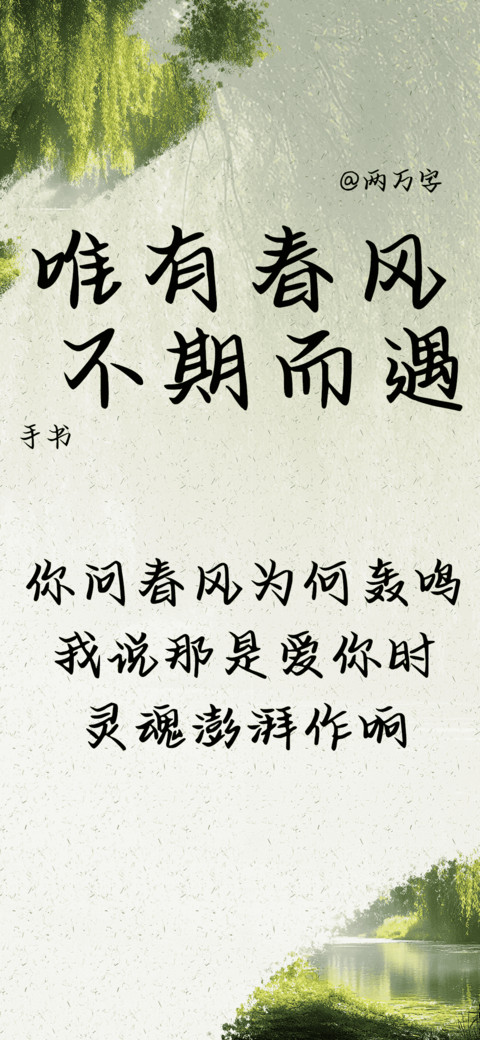 @两万字
唯有春风
不期而遇
手书
你问春风为何轰鸣
我说那是爱你时
灵魂澎湃作响